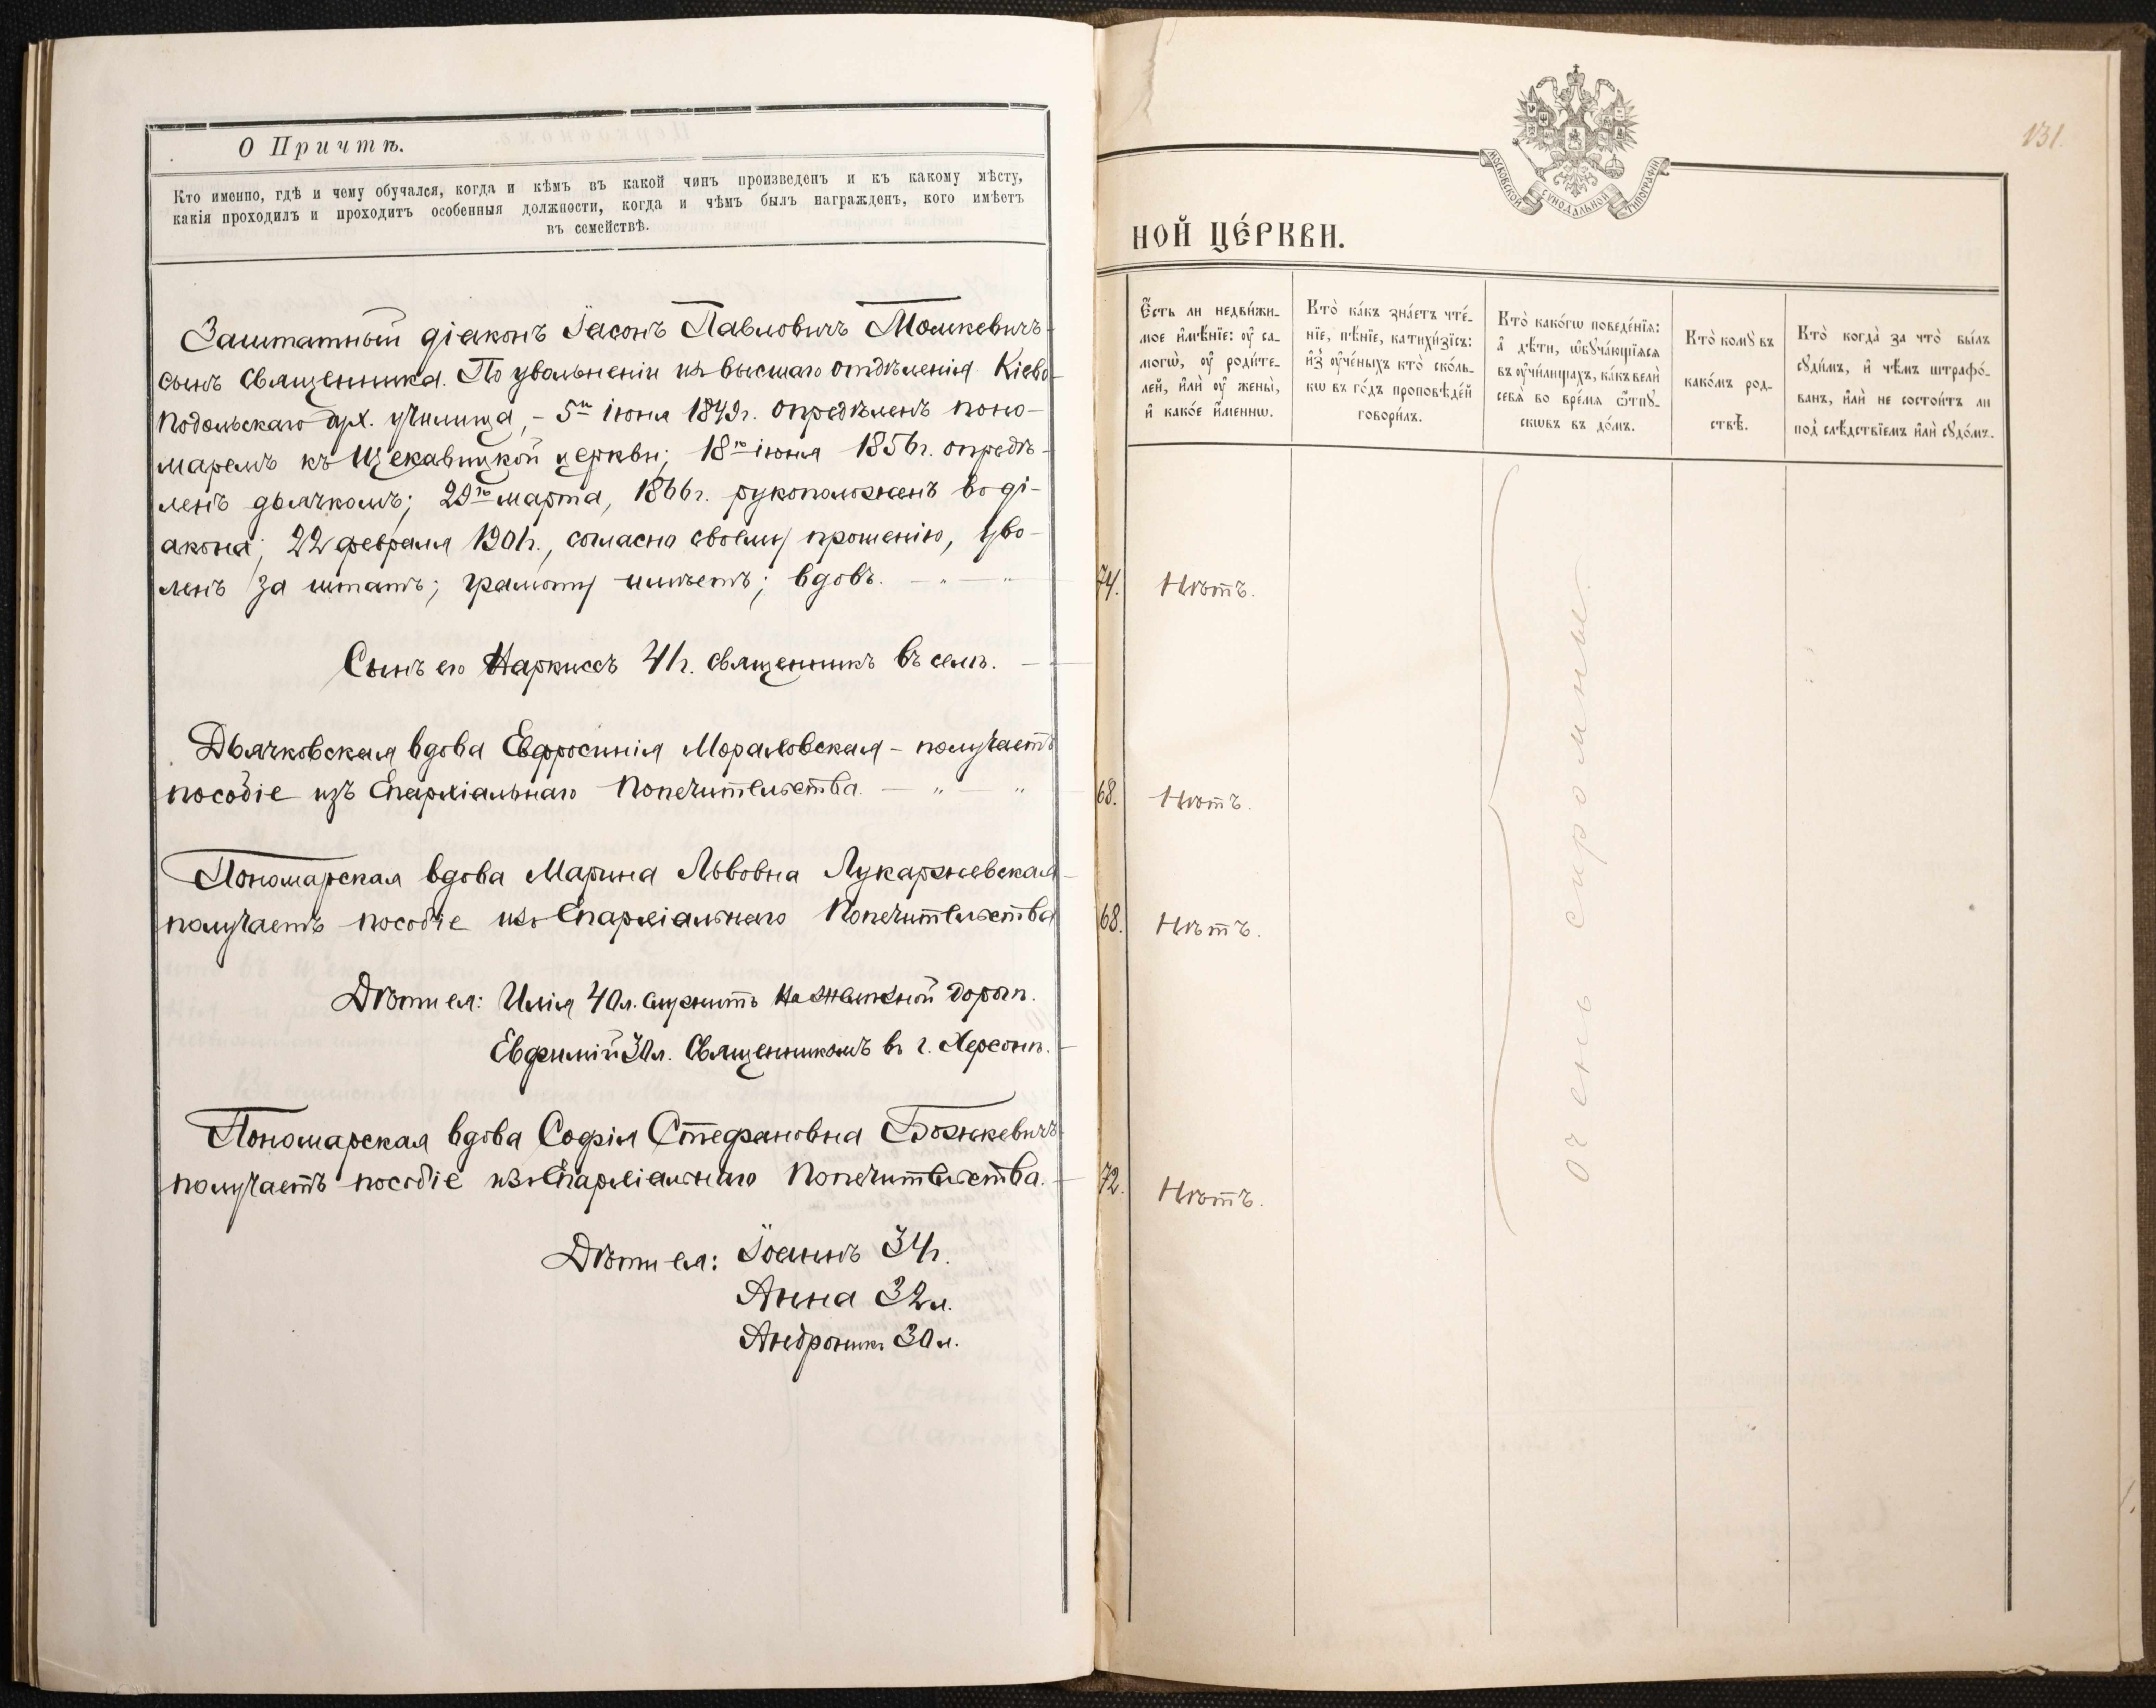 О Причтѣ.
Кто именно, гдѣ и чему обучался, когда и кѣмъ въ какой чинъ произведенъ и къ какому мѣсту,
какія проходилъ и проходитъ особенныя должности, когда и чѣмъ былъ награжденъ, кого имѣетъ
въ семействѣ.
Заштатный діаконъ Іасонъ Павловичъ Мошкевичъ
сынъ священника. По увольненіи изъ высшаго отдѣленія Кіево-
Подольскаго дух. училища, – 5го іюня 1849г. опредѣленъ поно-
маремъ къ Щекавицкой церкви; 18го іюня 1856г. опредѣ-
ленъ дьячкомъ; 29го марта, 1866г. рукоположенъ во ді-
акона; 22 февраля 1901г., согласно своему прошенію, уво-
ленъ за штатъ; грамоту имѣетъ; вдовъ. – „ – „
Сынъ его Наркиссъ 41г. священникъ въ селѣ. –
Дьячковская вдова Евфросинія Мораловская – получаетъ
пособіе изъ Епархіальнаго Попечительства. – „ – „
Пономарская вдова Марина Львовна Лукаржевская –
получаетъ пособіе изъ Епархіальнаго Попечительства
Дѣти ея: Илія 40л. служитъ на желѣзной дорогѣ.
Евфимій 30л. Священникомъ въ г. Херсонѣ. –
Пономарская вдова Софія Стефановна Божкевичъ
получаетъ пособіе изъ Епархіальнаго Попечительства. –
Дѣти ея: Іоаннъ 34г.
Анна 32л.
Андроникъ 30л.
131
МОСКОВСКОЙ СѴНОДАЛЬНОЙ ТИПОГРАФІИ
НОЙ ЦЕ́РКВИ.
Е҆́сть ли недви́жи-
мое и҆мѣ́нїе: ѹ҆ са-
могѡ̀, ѹ҆ роди́те-
лей, и҆лѝ ѹ҆ жены̀,
и҆ како́е и҆́меннѡ.
Кто̀ ка́къ зна́етъ чте́-
нїе, пѣ́нїе, катихи́зїсъ:
и҆з̾ ѹ҆че́ныхъ кто̀ ско́ль-
кѡ въ го́дъ проповѣ́дей
говори́лъ.
Кто̀ како́гѡ поведе́нїѧ:
а҆ дѣ́ти, ѡ҆бꙋча́ющїѧсѧ
въ ѹ҆чи́лищахъ, ка́къ велѝ
себѧ̀ во вре́мѧ ѿпꙋ-
скѡвъ въ до́мъ.
Кто̀ комꙋ̀ въ
како́мъ род-
ствѣ̀.
Кто̀ когда̀ за что̀ бы́лъ
сꙋди́мъ, и҆ чѣ́мъ штрафо́-
ванъ, и҆лѝ не состои́тъ ли
под̾ слѣ́дствїемъ и҆лѝ сꙋдо́мъ.
74. Нѣтъ.
68. Нѣтъ.
68. Нѣтъ.
72. Нѣтъ.
очень скромные